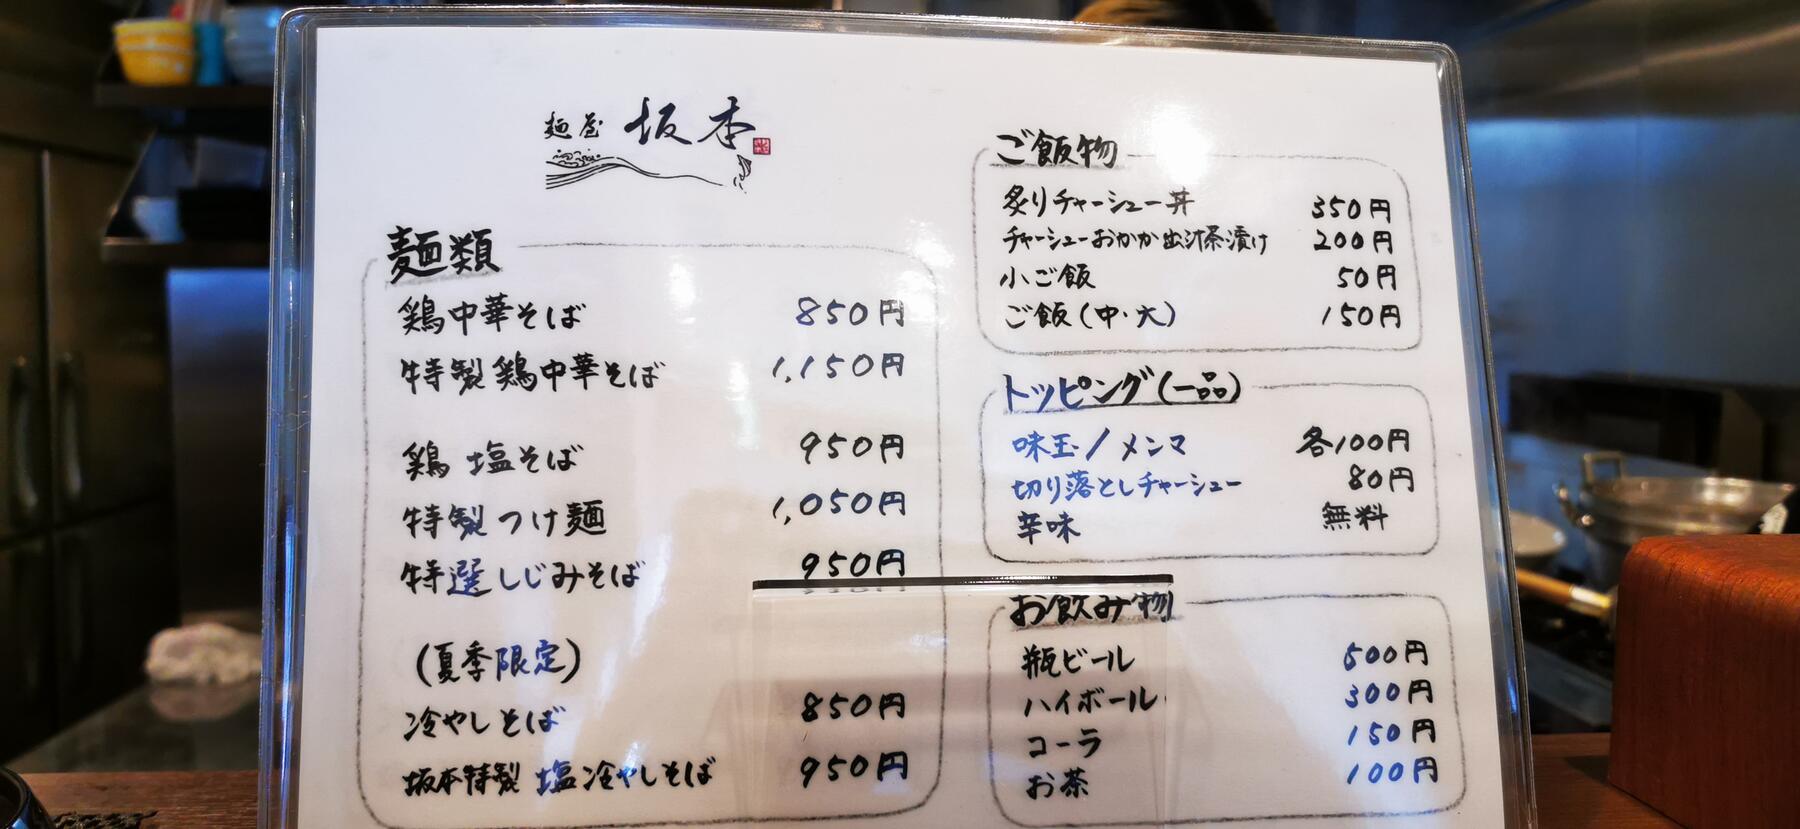 麺屋 坂本
麺類
鶏中華そば 850円
特製鶏中華そば 1,150円
鶏 塩そば 950円
特製つけ麺 1,050円
特選しじみそば 950円
(夏季限定)
冷やしそば 850円
坂本特製 塩冷やしそば 950円
ご飯物
炙りチャーシュー丼 350円
チャーシューおかか出汁茶漬け 200円
小ご飯 50円
ご飯(中・大) 150円
トッピング(一品)
味玉/メンマ 各100円
切り落としチャーシュー 80円
辛味 無料
お飲み物
瓶ビール 500円
ハイボール 300円
コーラ 150円
お茶 100円